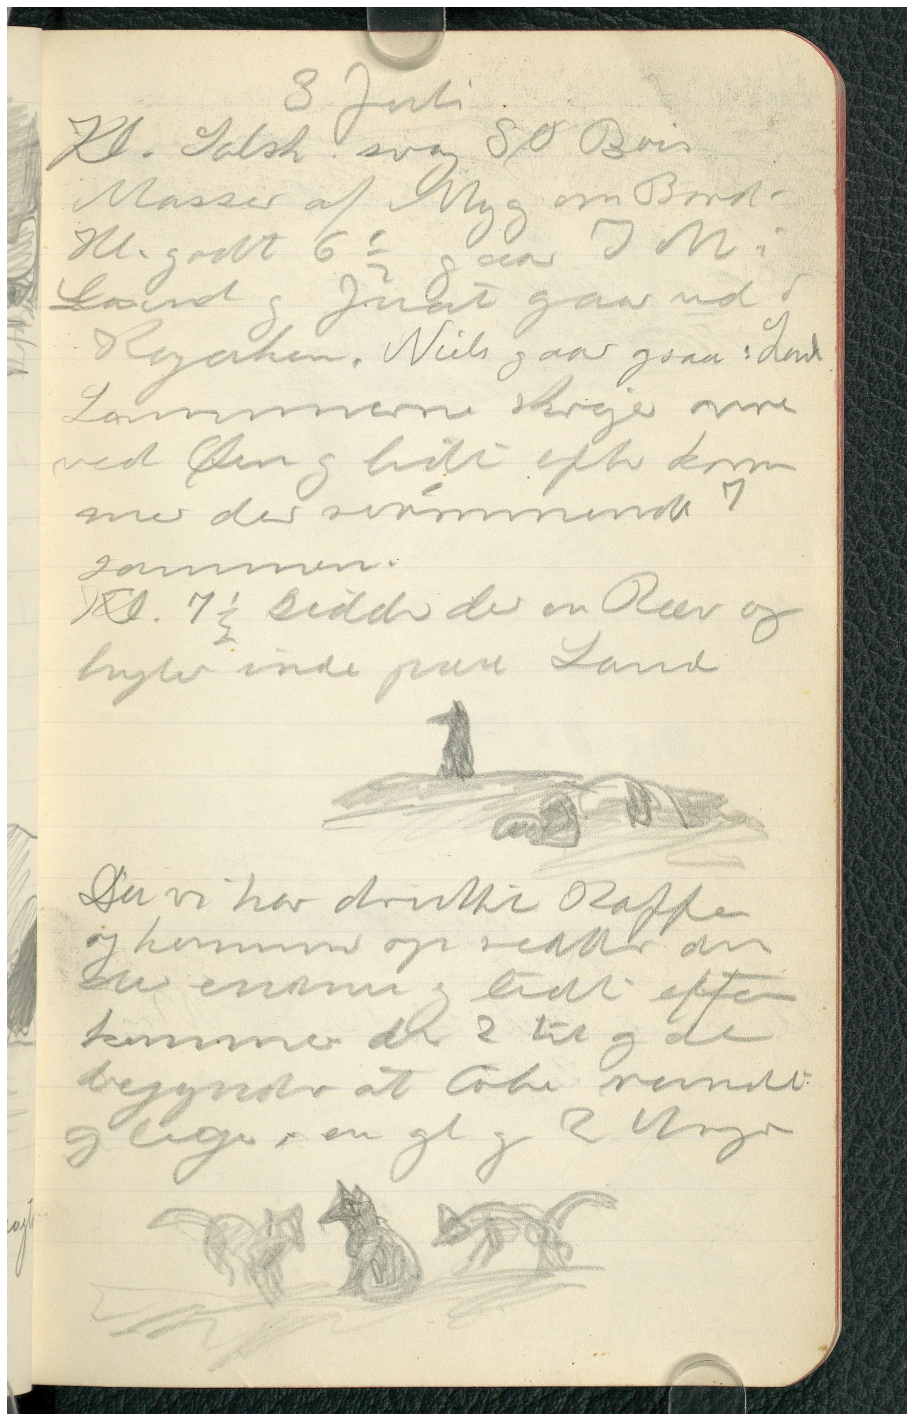 3 Juli
Kl. svag SO Bris
Masser af Myg om Bord
Kl. godt 6 1/2 gaar J M i
Land og gaar ud i
Kajakken. Niels gaar ogsaa i Land
Lommerne skriger ovre
ved Øen og lidt efter kom
mer der svømmende 7
sammen.
Kl. 7 1/2 sidder der en Ræv og
hyler inde paa Land
Da vi har drukket Kaffe
og kommer op sidder den
der endnu og lidt efter
kommer der 2 til og de
begynder at løbe rundt
og lege, en gl og 2 Unger